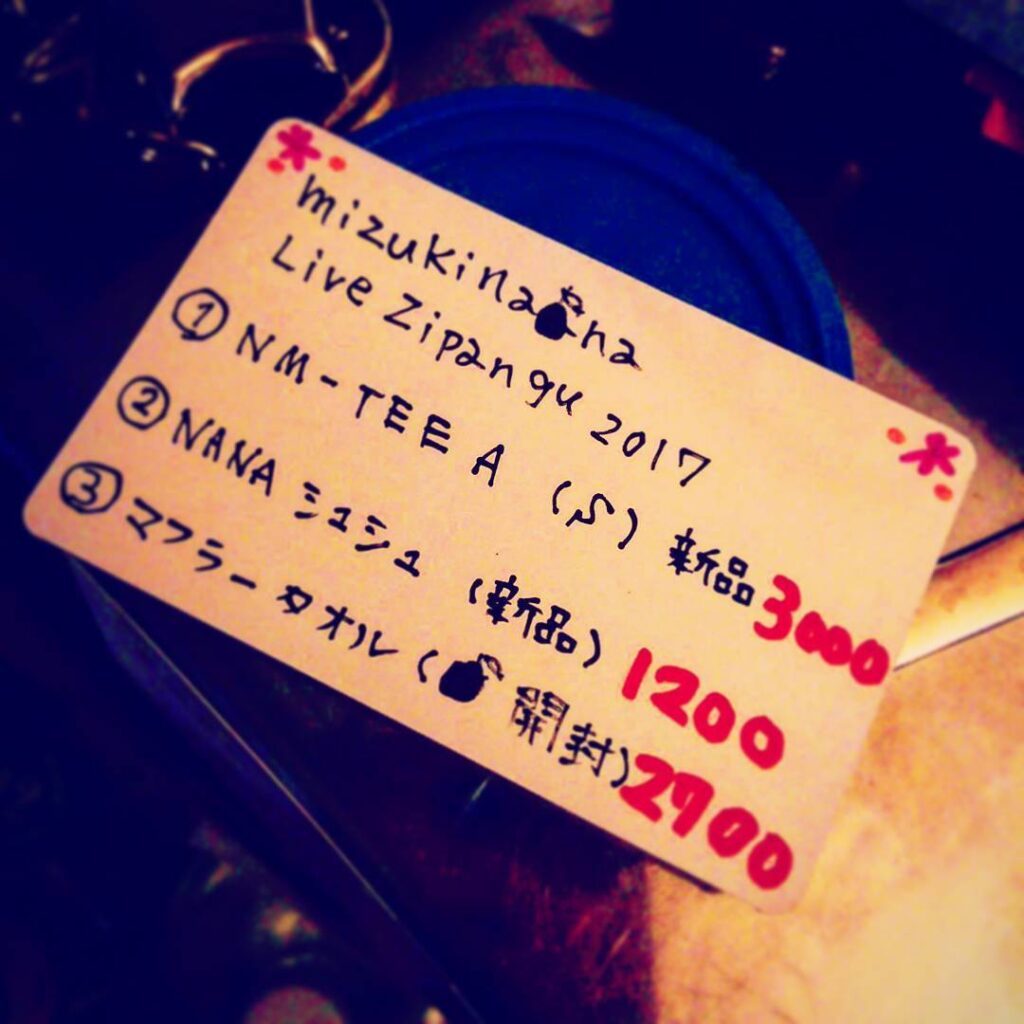 mizukinana
Live Zipangu 2017
① NM-TEE A (S) 新品 3000
② NANA シュシュ (新品) 1200
③ マフラータオル (開封) 2700